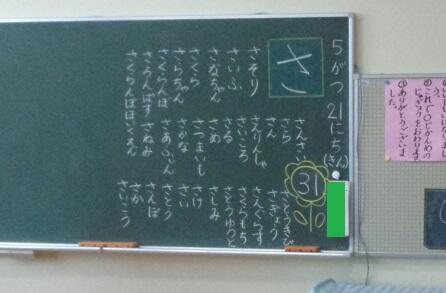 5がつ21にち(きん)
さ
さんさい
さら
さん
さいころ
さそり
さいふ
さなちゃん
さくら
さらちゃん
さくらんぼ
さらんらっぷ
さる
さめ
さつまいも
さかな
さあふぃん
さねみ
31
さとうきび
さぎょう
さんぐらす
さくらもち
さとうゆっと
さしみ
さけ
さい
さとう
さんぽ
さか
さいこう
これで○じかんめの
じゅぎょうをおわります
ありがとうございま
した。